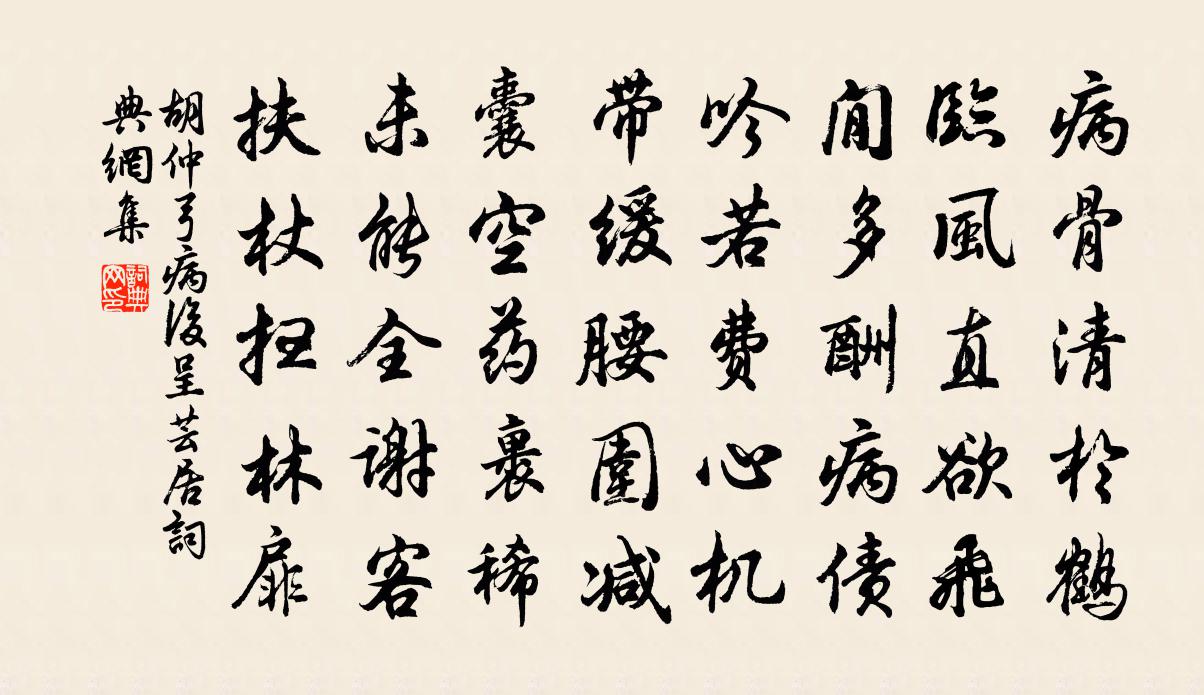 病骨清於鶴
臨風直欲飛
閒多酬病债
吟若费心机
带缓腰圍减
囊空药裹稀
未能全谢客
扶杖扫林扉
胡仲弓病後呈芸居詞
典網集
詞典
网印